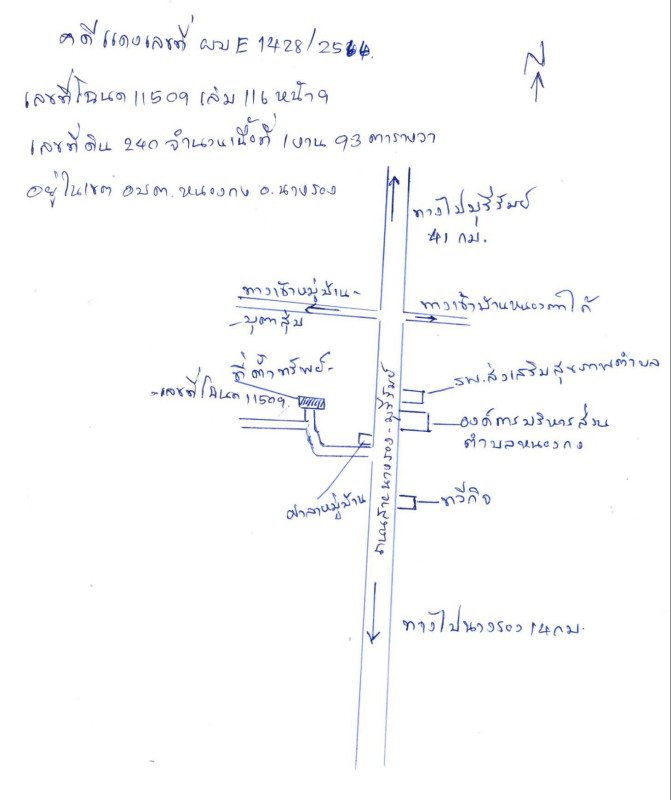 คดีแดงเลขที่ ผบE 1428/2564
N
เลขที่โฉนด 11509 เล่ม 116 หน้า 9
เลขที่ดิน 240 จำนวนเนื้อที่ 1 งาน 93 ตารางวา
อยู่ในเขต อบต.หนองกง อ.นางรอง
ทางไปบุรีรัมย์
41 กม.
ทางเข้าหมู่บ้าน-
-บุตาสุ่ม
ทางเข้าบ้านหนองตาไก้
ที่ตั้งทรัพย์-
-เลขที่โฉนด 11509
รพ.ส่งเสริมสุขภาพตำบล
องค์การบริหารส่วน
ตำบลหนองกง
ถนนสายนางรอง-บุรีรัมย์
ศาลาหมู่บ้าน
ทวีกิจ
ทางไปนางรอง 14 กม.